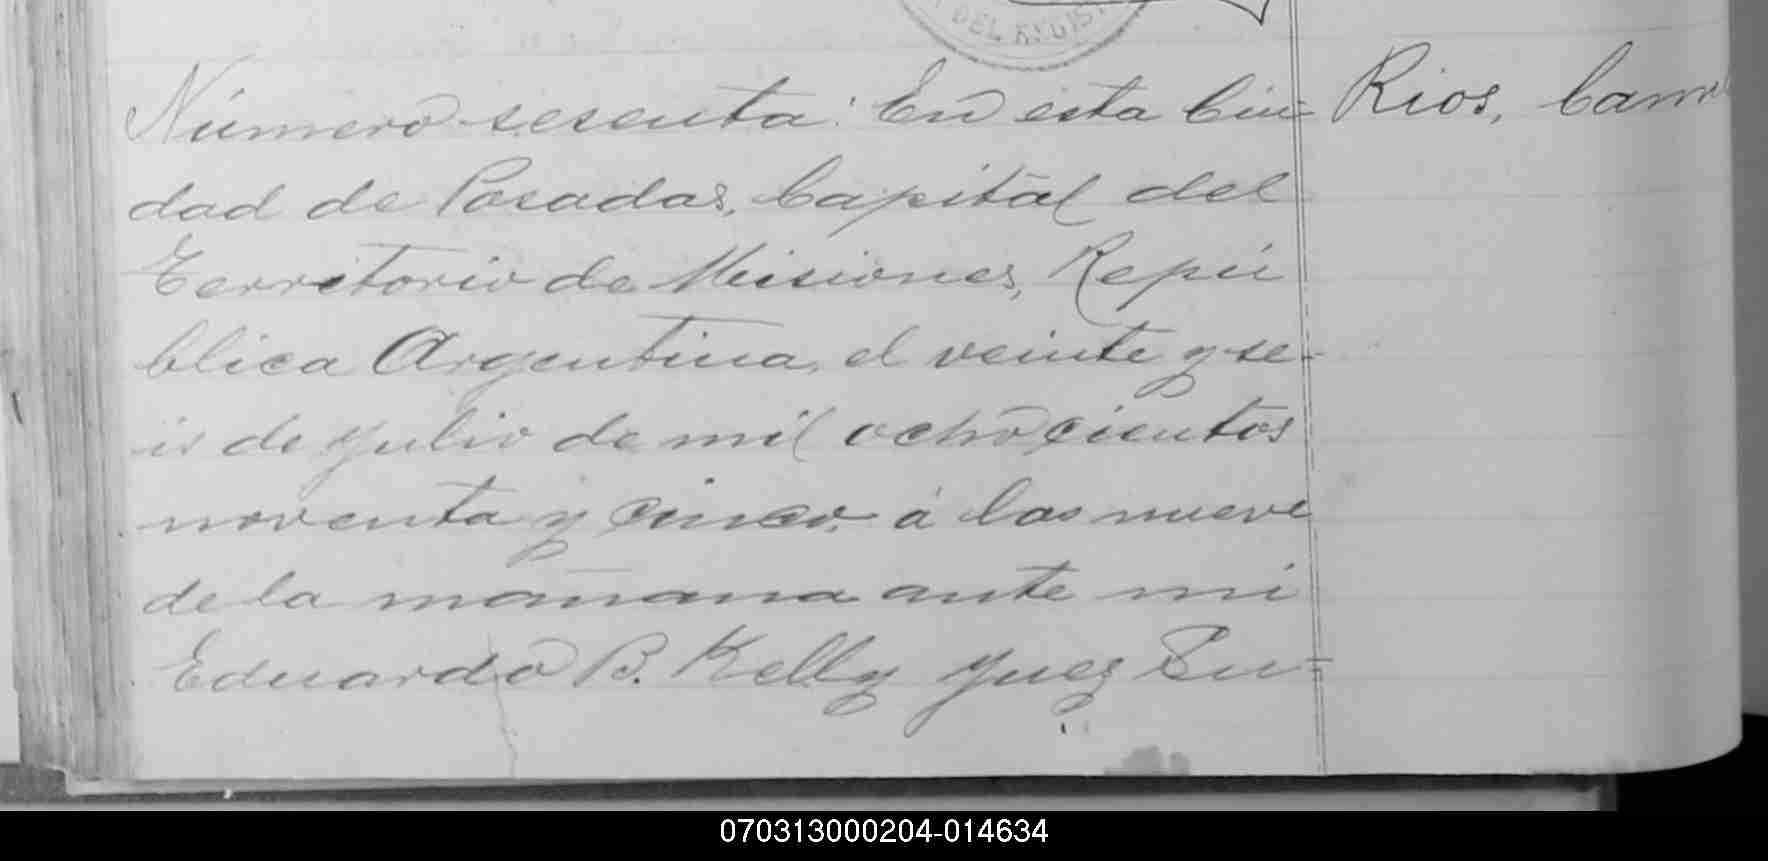 DEL REGIS
Número sesenta: En esta Ciu=
Rios,
dad de Posadas, Capital del
Territorio de Misiones, Repú
blica Argentina, el veinte y se-
is de Julio de mil ochocientos
noventa y cinco, á las nueve
de la mañana ante mi
Eduardo B. Kelly Juez Su=
070313000204-014634